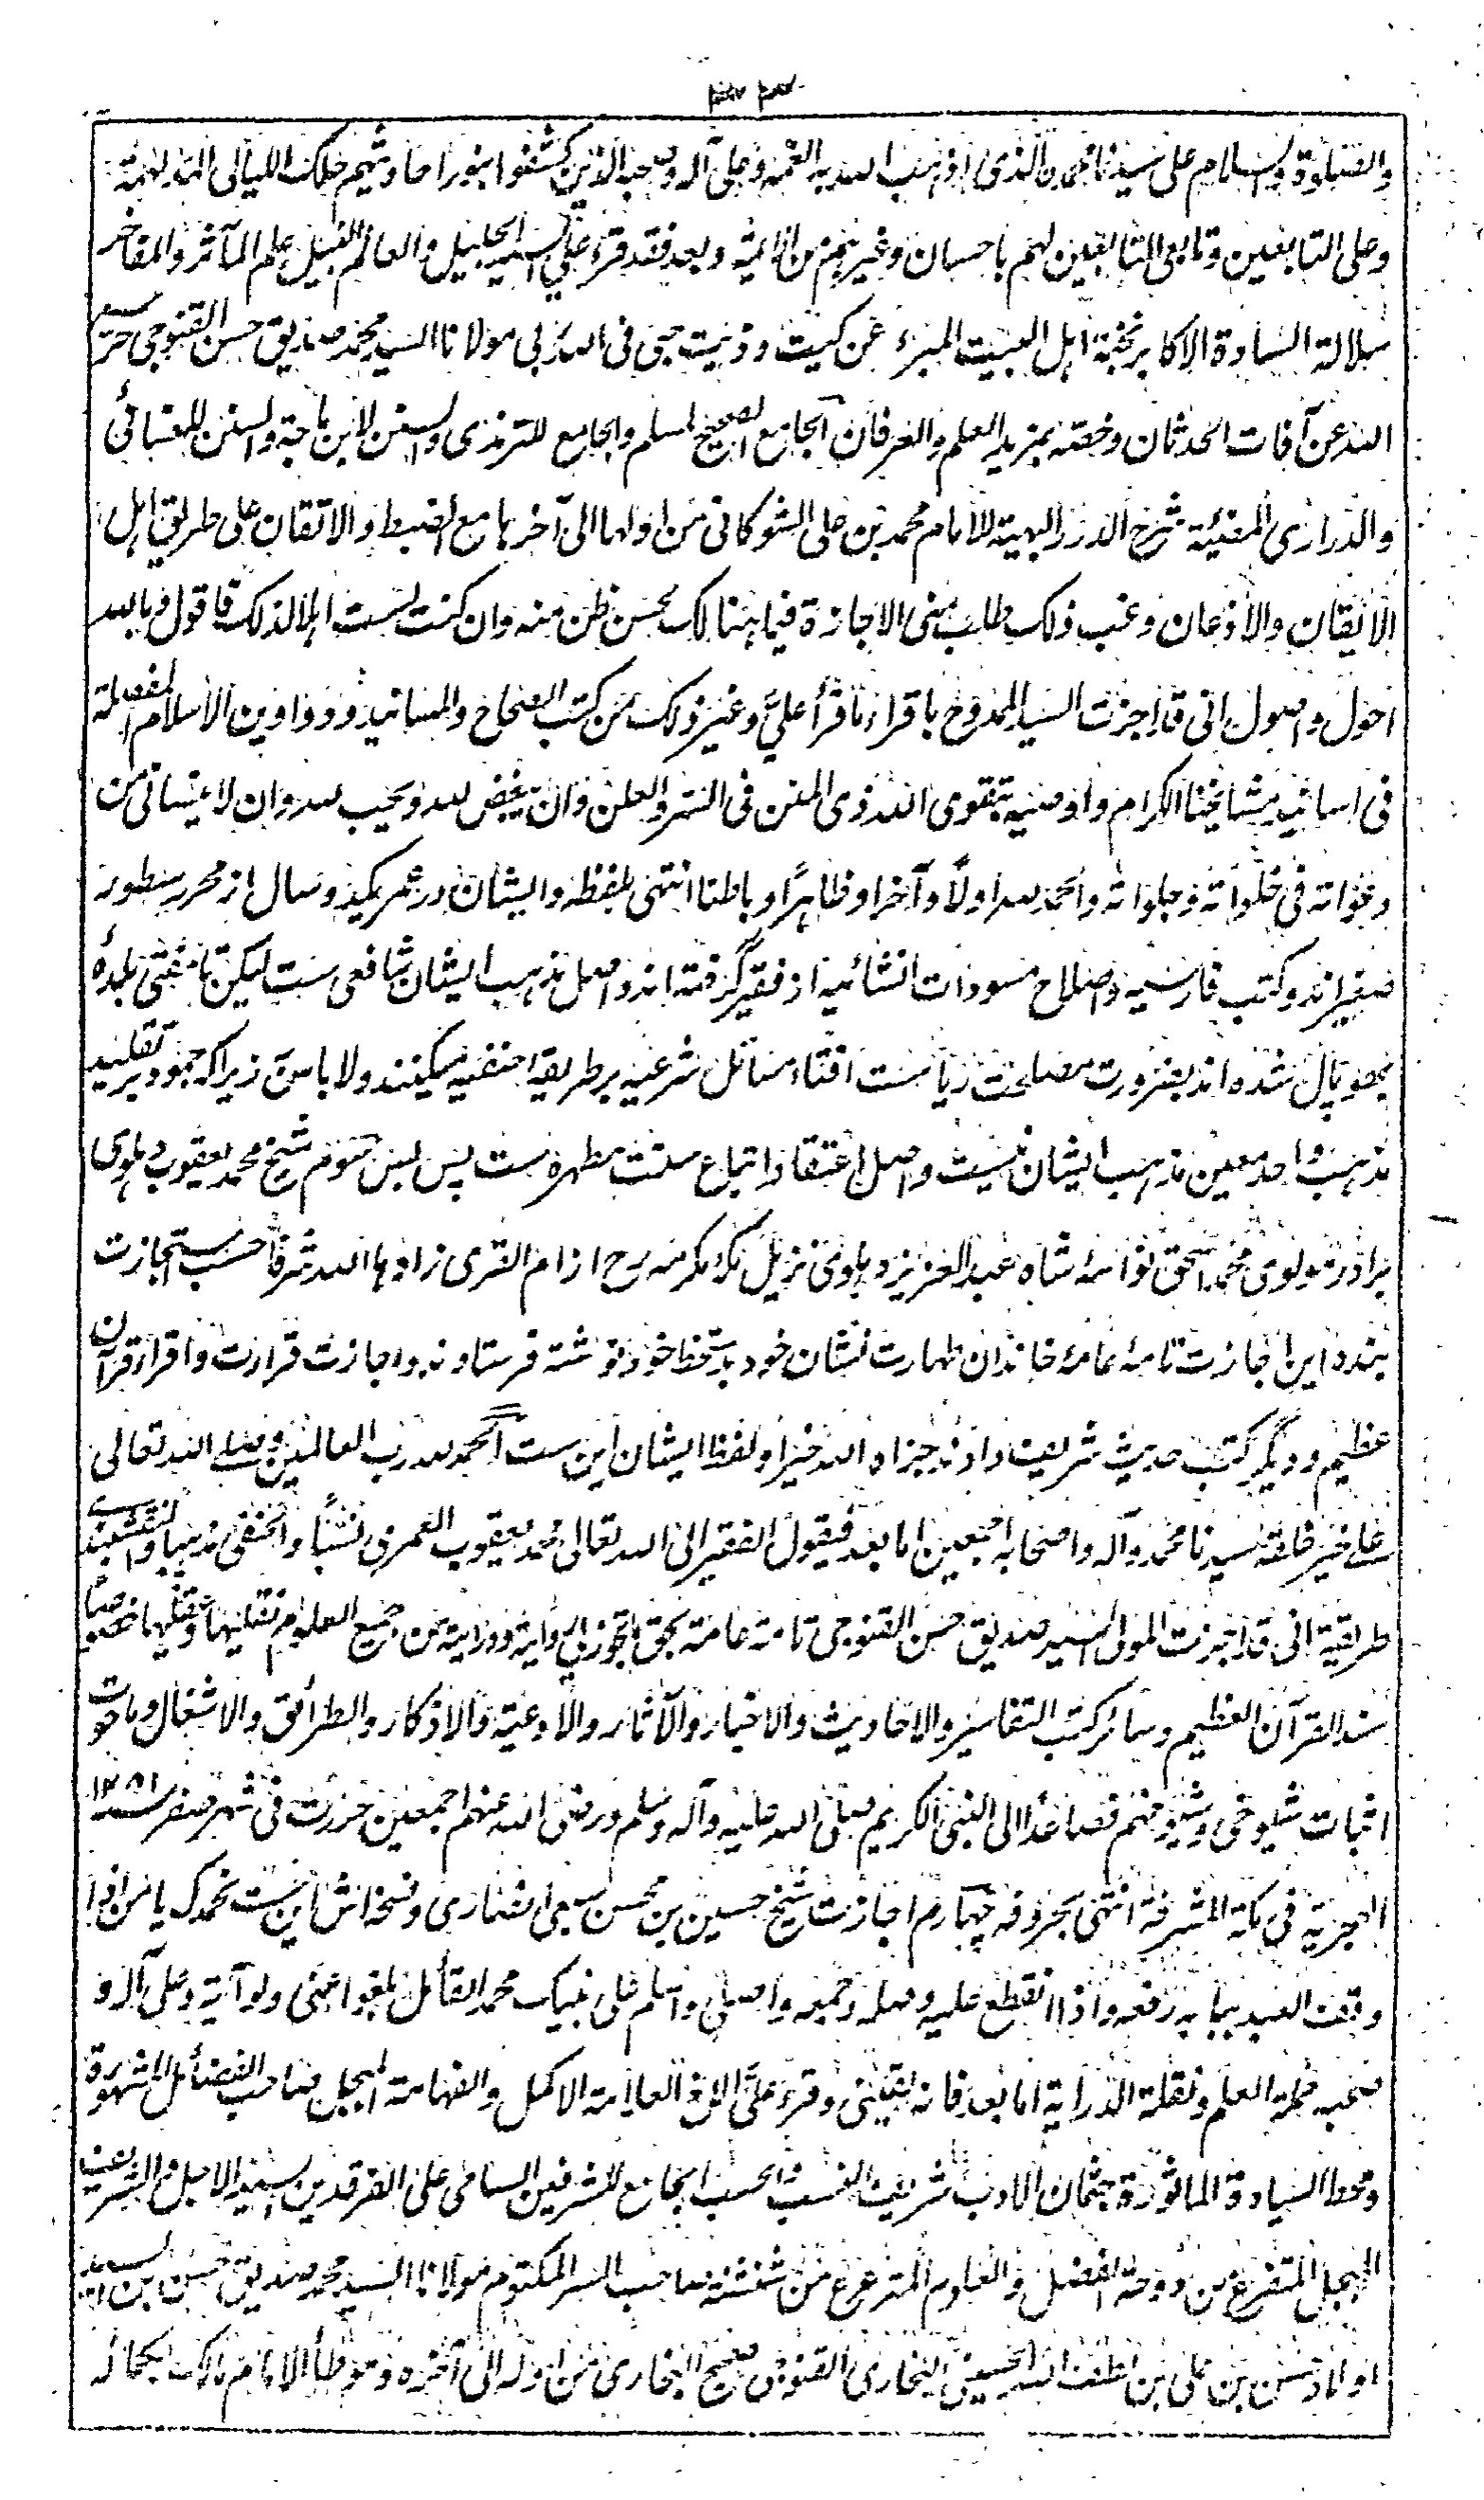 والصلوة والسلام على سيدنا محمد الذى اذهب الله به الغمة وعلى آله وصحبه الذين كشفوا بنور احاديثهم حلك الليالى المدلهمة
وعلى التابعين وتابعى التابعين لهم باحسان وغيرهم من الائمة وبعد فقد قرء على السيد الجليل والعالم النبيل علم المآثر والمفاخر
سلالة السادة الاكابر نخبة اهل البيت المبرء عن كيت وذيت حبى فى الله ربى مولانا السيد محمد صديق حسن القنوجى حرسه
الله عن آفات الحدثان وخصه بمزيد العلم والعرفان الجامع الصحيح لمسلم والجامع للترمذى والسنن لابن ماجة والسنن للنسائى
والدرارى المضيئة شرح الدرر البهية للامام محمد بن على الشوكانى من اولها الى آخرها مع الضبط والاتقان على طريق اهل
الايقان والاذعان وغب ذلك طلب منى الاجازة فيما هنالك بحسن ظن منه وان كنت لست اهلا لذلك فاقول وبالله
احول واصول انى قد اجزت السيد الممدوح باقراء ما قرأ علىّ وغير ذلك من كتب الصحاح والمسانيد ودواوين الاسلام المفصلة
فى اسانيد مشايخنا الكرام واوصيه بتقوى الله ذى المنن فى السر والعلن وان يبغض لله ويحب لله وان لا ينسانى من
دعواته فى خلواته وجلواته والحمد لله اولاً وآخرا وظاهراً وباطنا انتهى بلفظه وايشان در عمر يكدو سال از محرر سطور
صغير اند وكتب فارسيه واصلاح مسودات انشائيه از فقير گرفته اند واصل مذهب ايشان شافعى ست ليكن تا مفتى بلدۀ
بهوپال شده اند بضرورت مصلحت رياست افتاء مسائل شرعيه بر طريقه حنفيه ميكنند ولا باس زيرا كه جمود بر تقليد
مذهب واحد معين مذهب ايشان نيست واصل اعتقاد اتباع سنت مطهره ست پس سوم شيخ محمد يعقوب دهلوى
برادر مولوى محمد اسحق نواسه شاه عبد العزيز دهلوى نزيل مكه مكرمه رح از ام القرى زادها الله شرفا حسب استجازت
بنده اين اجازت تامه عامه خاندان طهارت نشان خود بدستخط خود نوشته فرستاوند واجازت قراءت واقراء قرآن
عظيم وديگر كتب حديث شريف دادند جزاه الله خيرا ولفظ ايشان اين ست الحمد لله رب العالمين وصلى الله تعالى
على خير خلقه سيدنا محمد وآله واصحابه اجمعين اما بعد فيقول الفقير الى الله تعالى محمد يعقوب العمرى نسباً والحنفى مذهبا والنقشبندى
طريقة انى قد اجزت المولى السيد صديق حسن القنوجى تامة عامة بحق ما تجوز لى روايته ودرايته من جميع العلوم نقليها وعقليها خصوصا
سند القرآن العظيم وسائر كتب التفاسير والاحاديث والاخبار والآثار والادعية والاذكار والطرائق والاشغال وما حوت
اثبات شيوخى وشيوخهم فصاعدا الى النبى الكريم صلى الله عليه وآله وسلم ورضى الله عنهم اجمعين حررت فى شهر صفر سنه ١٢٨١
الهجرية فى مكة المشرفة انتهى بحروفه چهارم اجازت شيخ حسين بن محسن سبعى انصارى ونسخه اش اين ست نحمدك يا من اذا
وقف العبد ببابه رفعه واذا انقطع عليه وصله وجمعه واصلى واسلم على نبيك محمد القائل بلغوا عنى ولو آية وعلى آله و
صحبه حملة العلم ونقلة الدراية اما بعد فانه لقينى وقرء علىّ الاخ العلامة الاكمل والفهامة المبجل صاحب الفضائل المشهورة
ومحط السيادة الماثورة جثمان الادب شريف النسب والحسب الجامع للشرفين السامى على الفرقدين السيد الاجل والشريف
المبجل المتفرع من دوحة الفضل والعلوم المترعرع من شنشنة صاحب السر المكتوم مولانا السيد محمد صديق حسن بن السيد
اولاد حسن بن على بن لطف الله الحسينى البخارى القنوجى صحيح البخارى من اوله الى آخره وموطأ الامام مالك بكماله